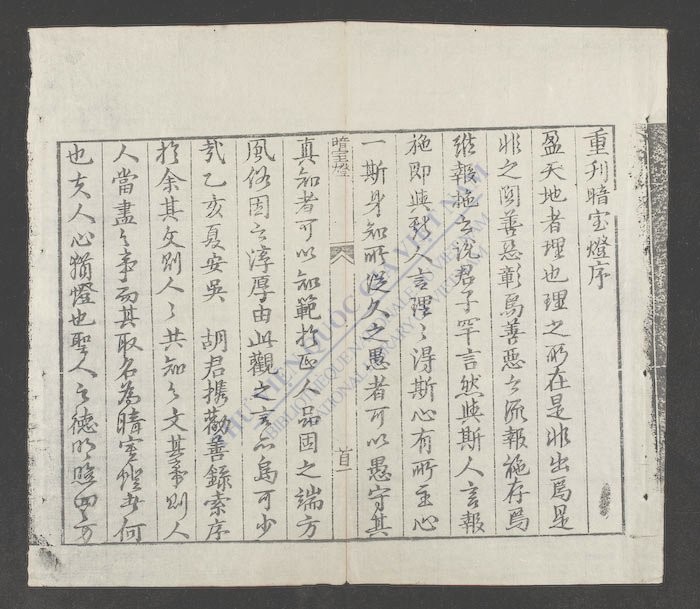 重刊暗室燈序
盈天地者理也理之所在是非出焉是
非之間善惡彰焉善惡之流報施存焉
維報施之說君子罕言然與斯人言報
施即與斯人言理之得斯心有所主心
一斯身知所從久之愚者可以愚守其
暗室燈
首一
真知者可以知範於正人品因之端方
風俗因之淳厚由此觀之言不烏可少
哉乙亥夏安吳 胡君攜勸善錄索序
於余其文則人之共知之文其事則人
人當盡之事而其取名為暗室燈者何
也夫人心猶燈也聖人之德明照四方
THƯ VIỆN QUỐC GIA VIỆT NAM
BIBLIOTHEQUE NATIONALE DU VIETNAM
NATIONAL LIBRARY OF VIETNAM